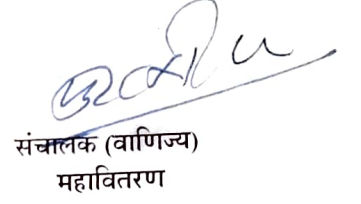 संचालक (वाणिज्य)
महावितरण